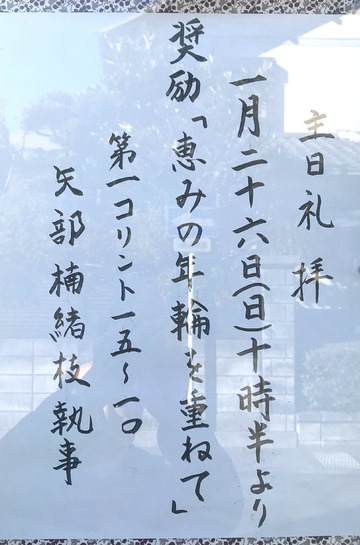 主日礼拝
一月二十六日(日)十時半より
奨励「恵みの年輪を重ねて」
第一コリント一五〜一〇
矢部楠緒枝執事